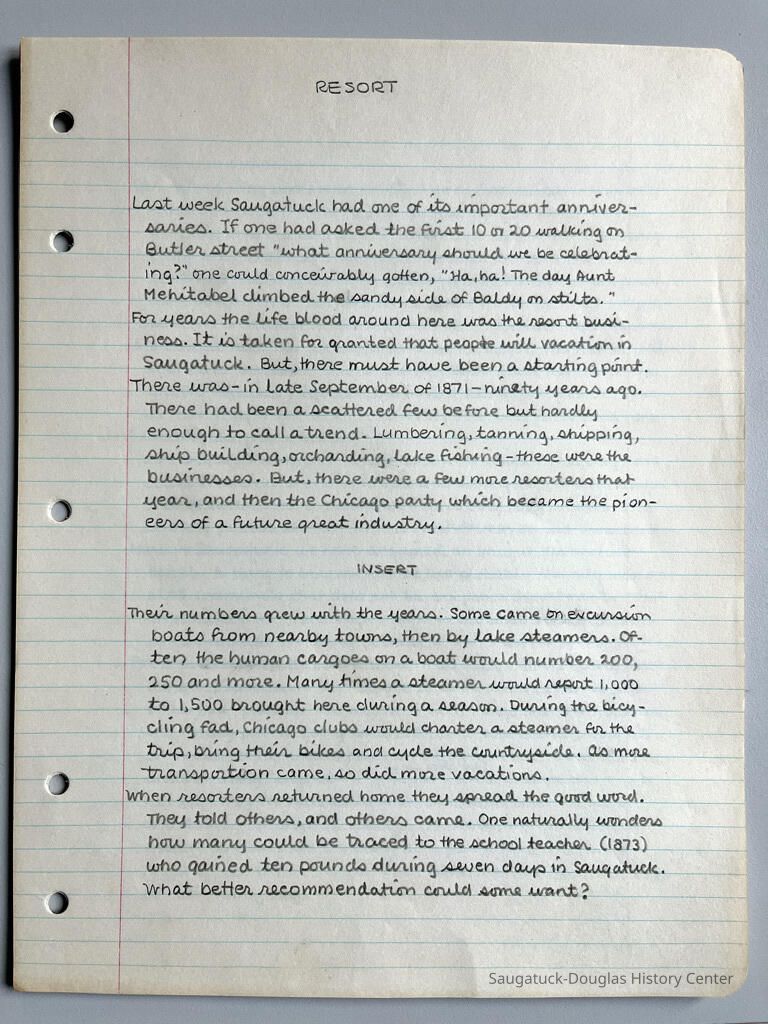 RESORT
Last week Saugatuck had one of its important anniver-
saries. If one had asked the first 10 or 20 walking on
Butler street "what anniversary should we be celebrat-
ing?" one could conceivably gotten, "Ha, ha! The day Aunt
Mehitabel climbed the sandy side of Baldy on stilts."
For years the life blood around here was the resort busi-
ness. It is taken for granted that people will vacation in
Saugatuck. But, there must have been a starting point.
There was - in late September of 1871 - ninety years ago.
There had been a scattered few before but hardly
enough to call a trend. Lumbering, tanning, shipping,
ship building, orcharding, lake fishing - these were the
businesses. But, there were a few more resorters that
year, and then the Chicago party which became the pion-
eers of a future great industry.
INSERT
Their numbers grew with the years. Some came on excursion
boats from nearby towns, then by lake steamers. Of-
ten the human cargoes on a boat would number 200,
250 and more. Many times a steamer would report 1,000
to 1,500 brought here during a season. During the bicy-
cling fad, Chicago clubs would charter a steamer for the
trip, bring their bikes and cycle the countryside. As more
transportion came, so did more vacations.
When resorters returned home they spread the good word.
They told others, and others came. One naturally wonders
how many could be traced to the school teacher (1873)
who gained ten pounds during seven days in Saugatuck.
What better recommendation could some want?
Saugatuck-Douglas History Center